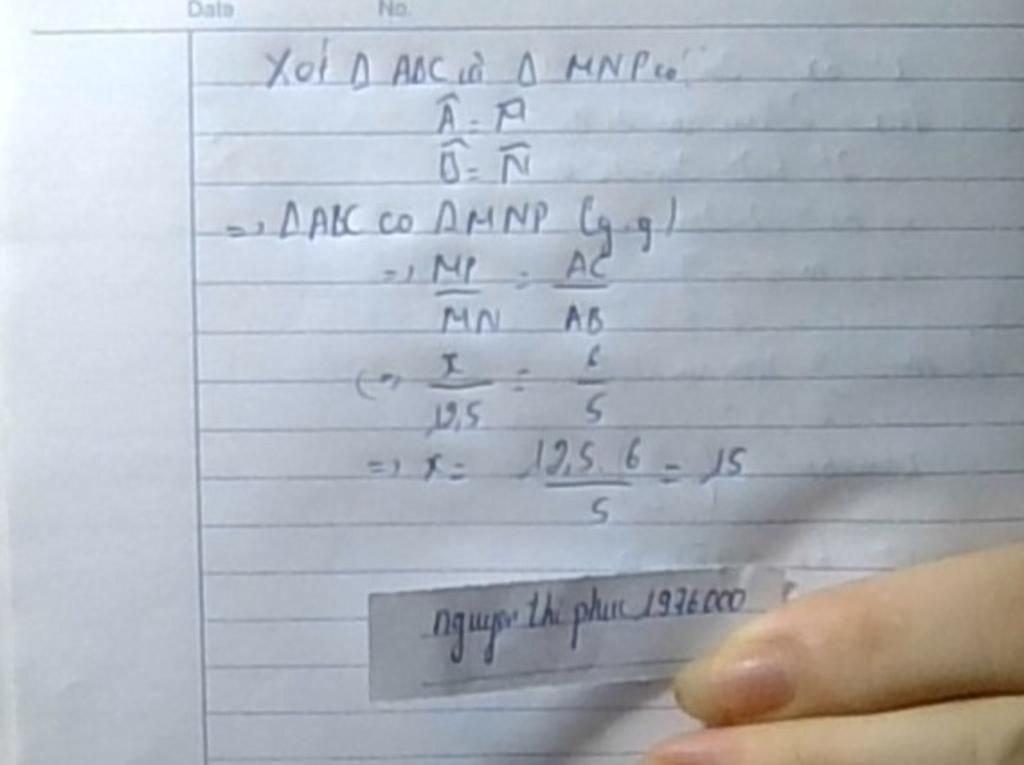 Date No.
Xét Δ ABC và Δ MNP có
Â = M̂
B̂ = N̂
=> ΔABC ∽ ΔMNP (g.g)
=> MP/MN = AC/AB
<=> x/12,5 = 6/5
=> x = 12,5.6/5 = 15
nguyen thi phuc 1976000